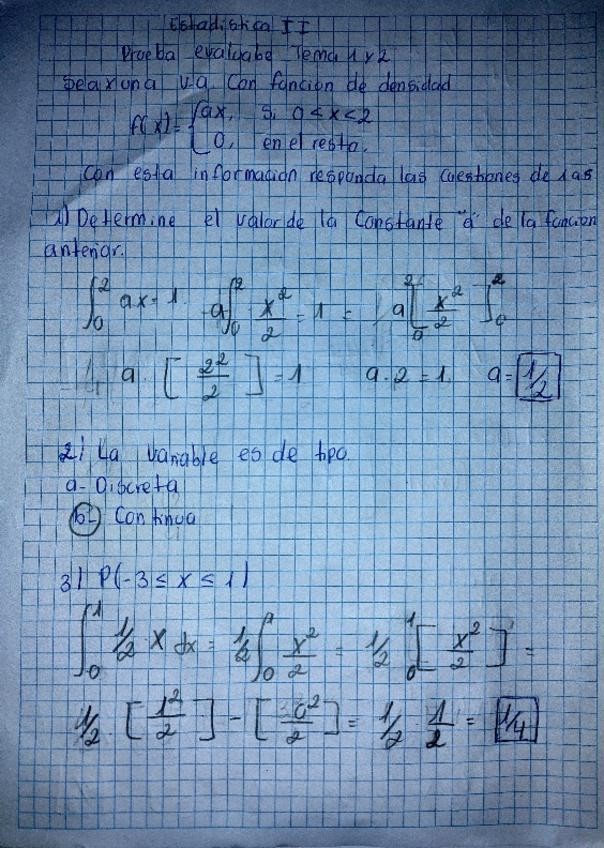 Estadistica II
Prueba evaluabe Tema 1 y 2
Sea x una v.a con función de densidad
f(x)= { ax, si 0<x<2
0, en el resto.
Con esta información responda las cuestiones de las
1) Determine el valor de la Constante "a" de la función
anterior.
∫₀² ax=1 a∫₀² x²/2 = 1 = a[x²/2]₀²
a·[2²/2]=1 a·2=1. a=1/2
2) La variable es de tipo
a- Discreta
b- Continua
3) P(-3≤x≤1)
∫₀¹ 1/2 x dx = 1/2 ∫₀¹ x²/2 = 1/2 [x²/2]₀¹ =
1/2·[1²/2]-[0²/2]= 1/2 1/2 = 1/4